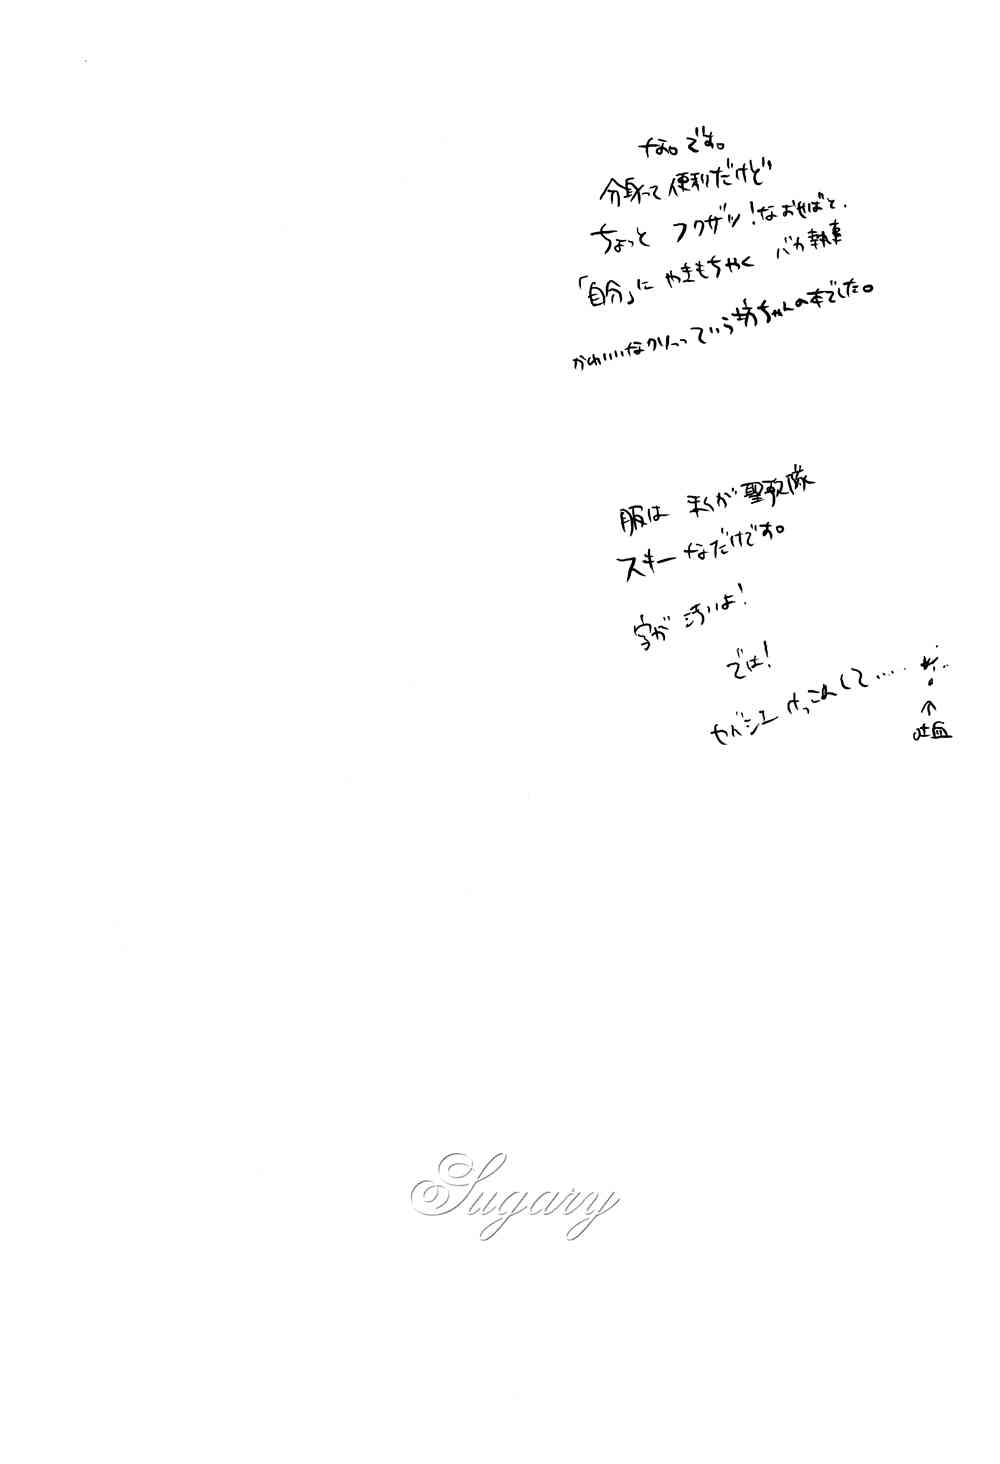 な。です。
分身って便利だけど
ちょっと フクザツ!なおせばと、
「自分」に やきもちやく バカ執事
かわいいなクソーっていう坊ちゃんの本でした。
服は 末くが 聖歌隊
スキーなだけです。
字が 汚いよ!
では!
セバシエ けっこんして……
↑
吐血
Sugary